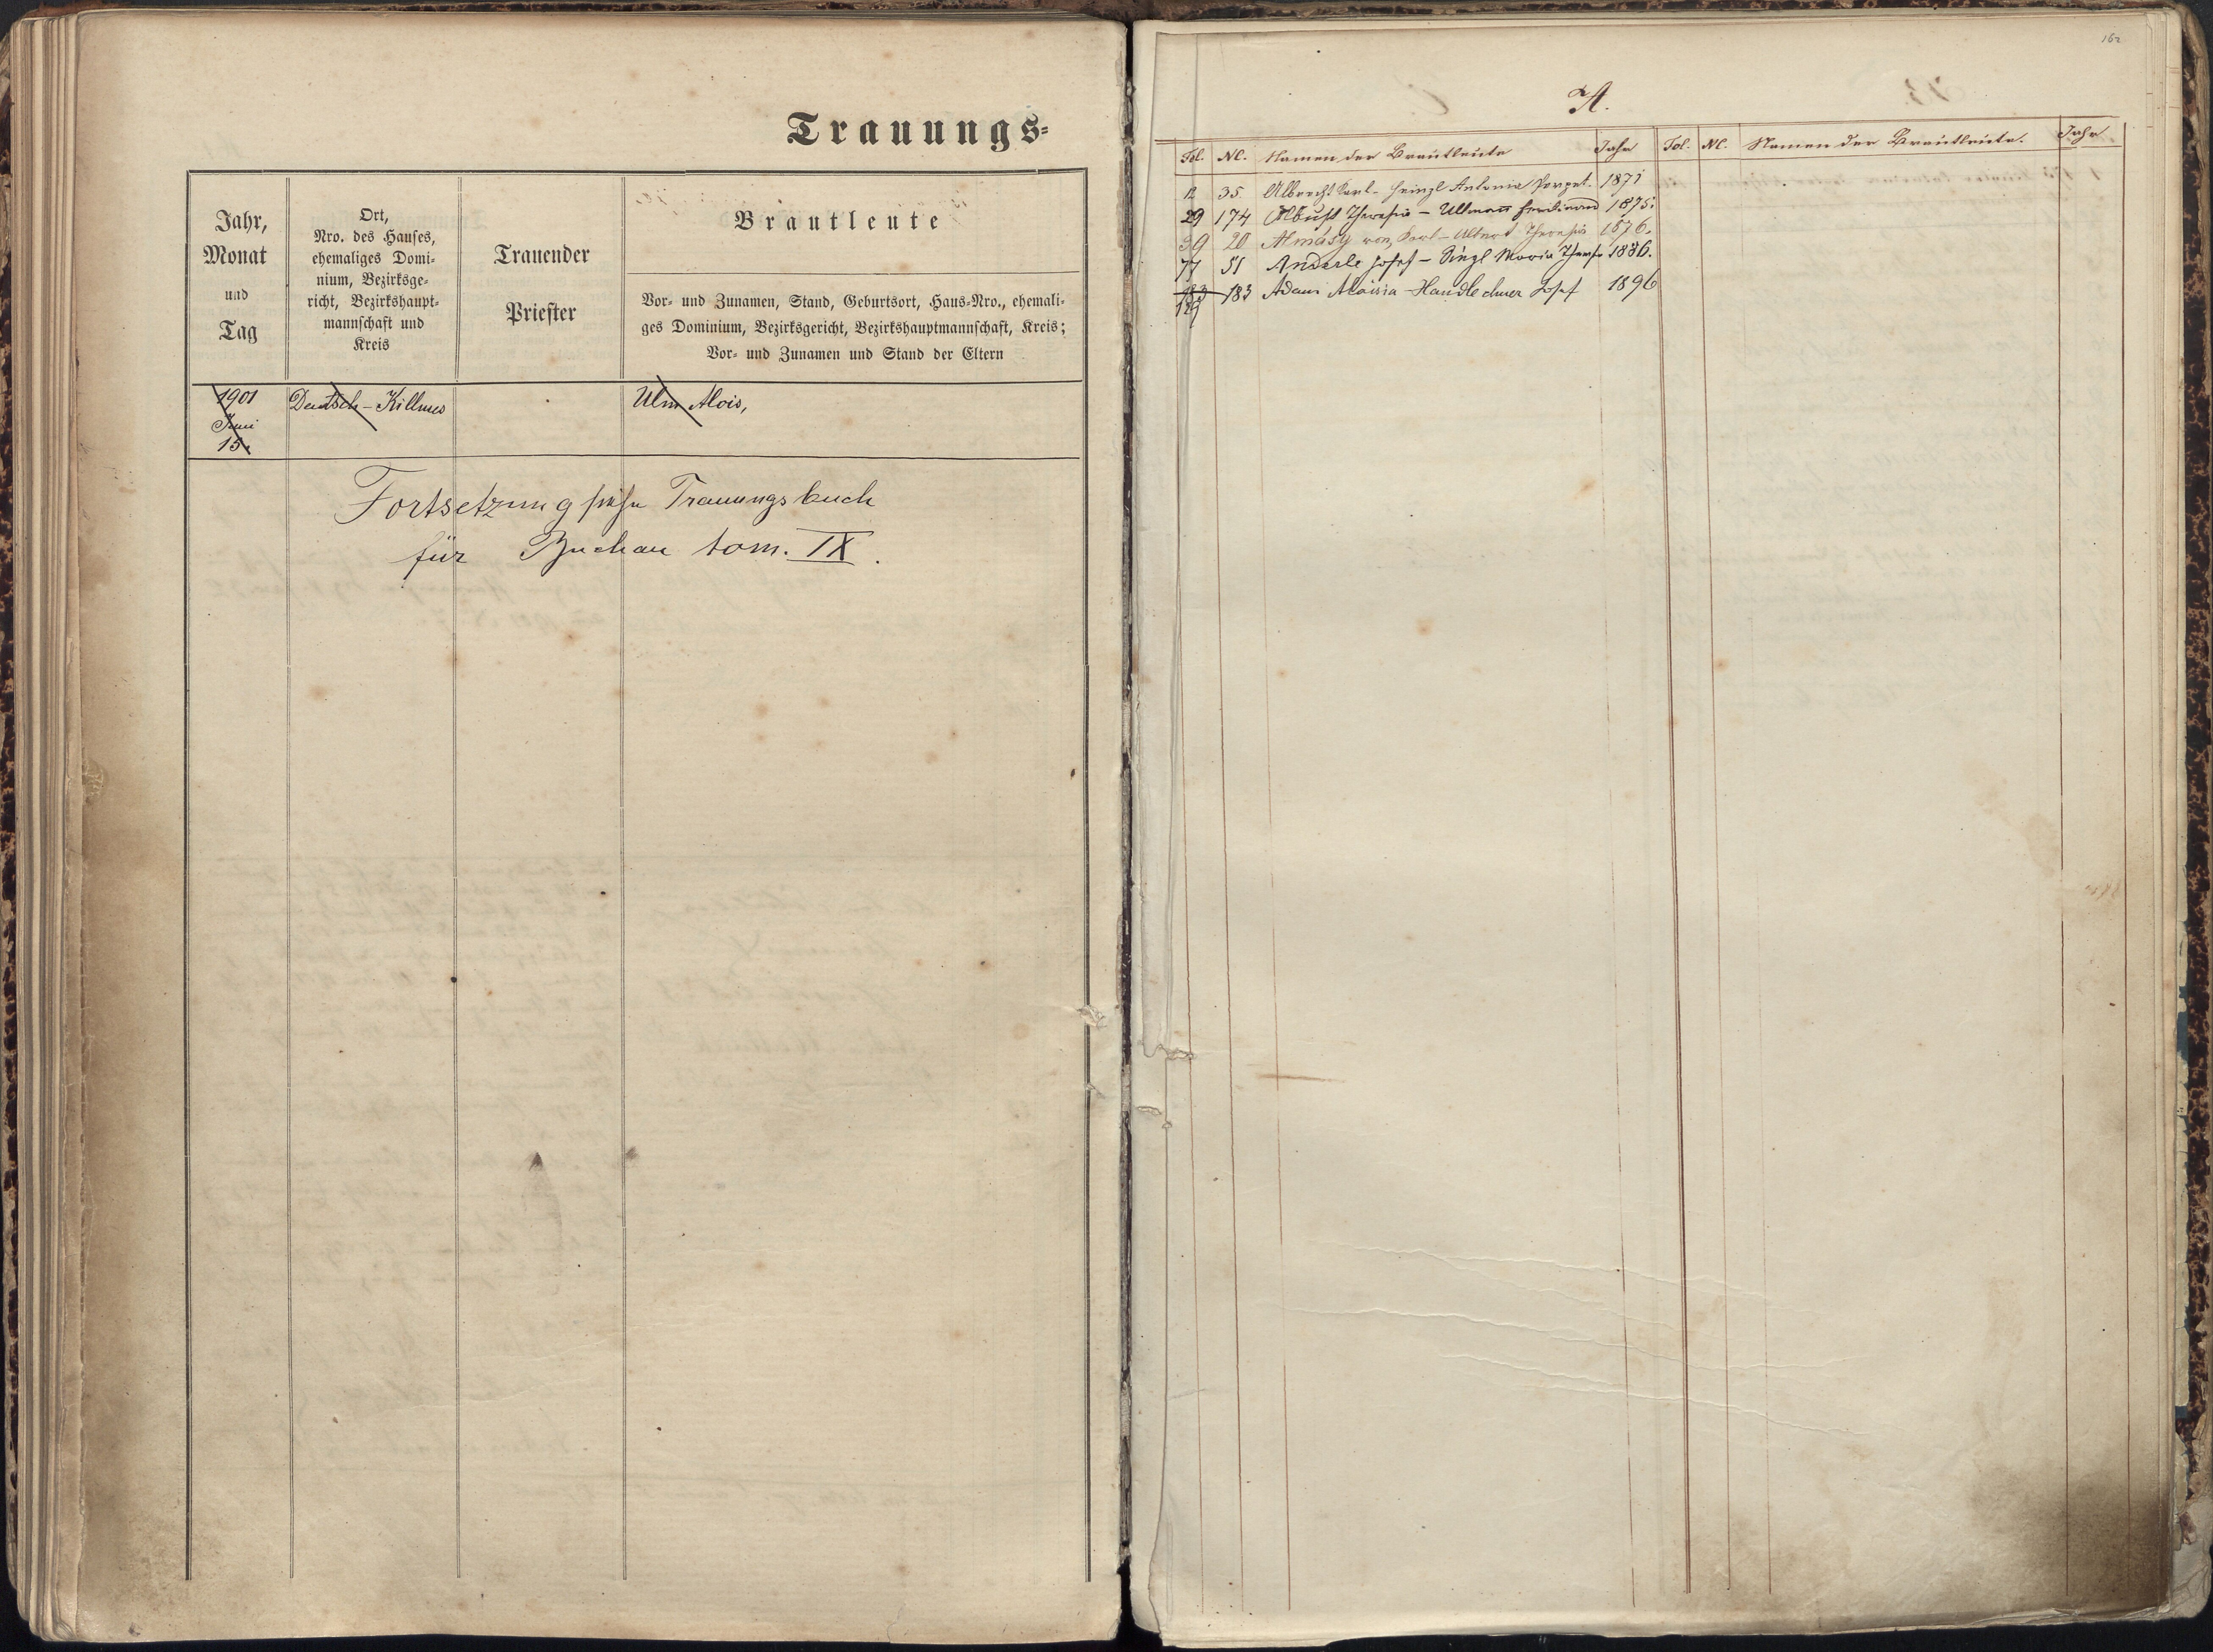 Trauungs-
Jahr,
Monat
und
Tag
Ort,
Nro. des Hauses,
ehemaliges Domi-
nium, Bezirksge-
richt, Bezirkshaupt-
mannschaft und
Kreis
Trauender
Priester
Brautleute
Vor- und Zunamen, Stand, Geburtsort, Haus-Nro., ehemali-
ges Dominium, Bezirksgericht, Bezirkshauptmannschaft, Kreis;
Vor- und Zunamen und Stand der Eltern
1901 Deutsch-Killmes Ulm Alois,
Juni
15.
Fortsetzung siehe Trauungsbuch
für Buchau tom. IX.
162
A.
Fol. No. Namen der Brautleute Jahr Fol. No. Namen der Brautleute. Jahr
12 35 Albrecht Karl - Heinzl Antonia 1871
29 174 Theresia - Ullmann Ferdinand 1875.
39 20 Almásy von, Karl - Albert Theresia 1876.
77 51 Anderle Josef - Maria 1886.
183 Adam Aloisia - Handlechner Josef 1896
129